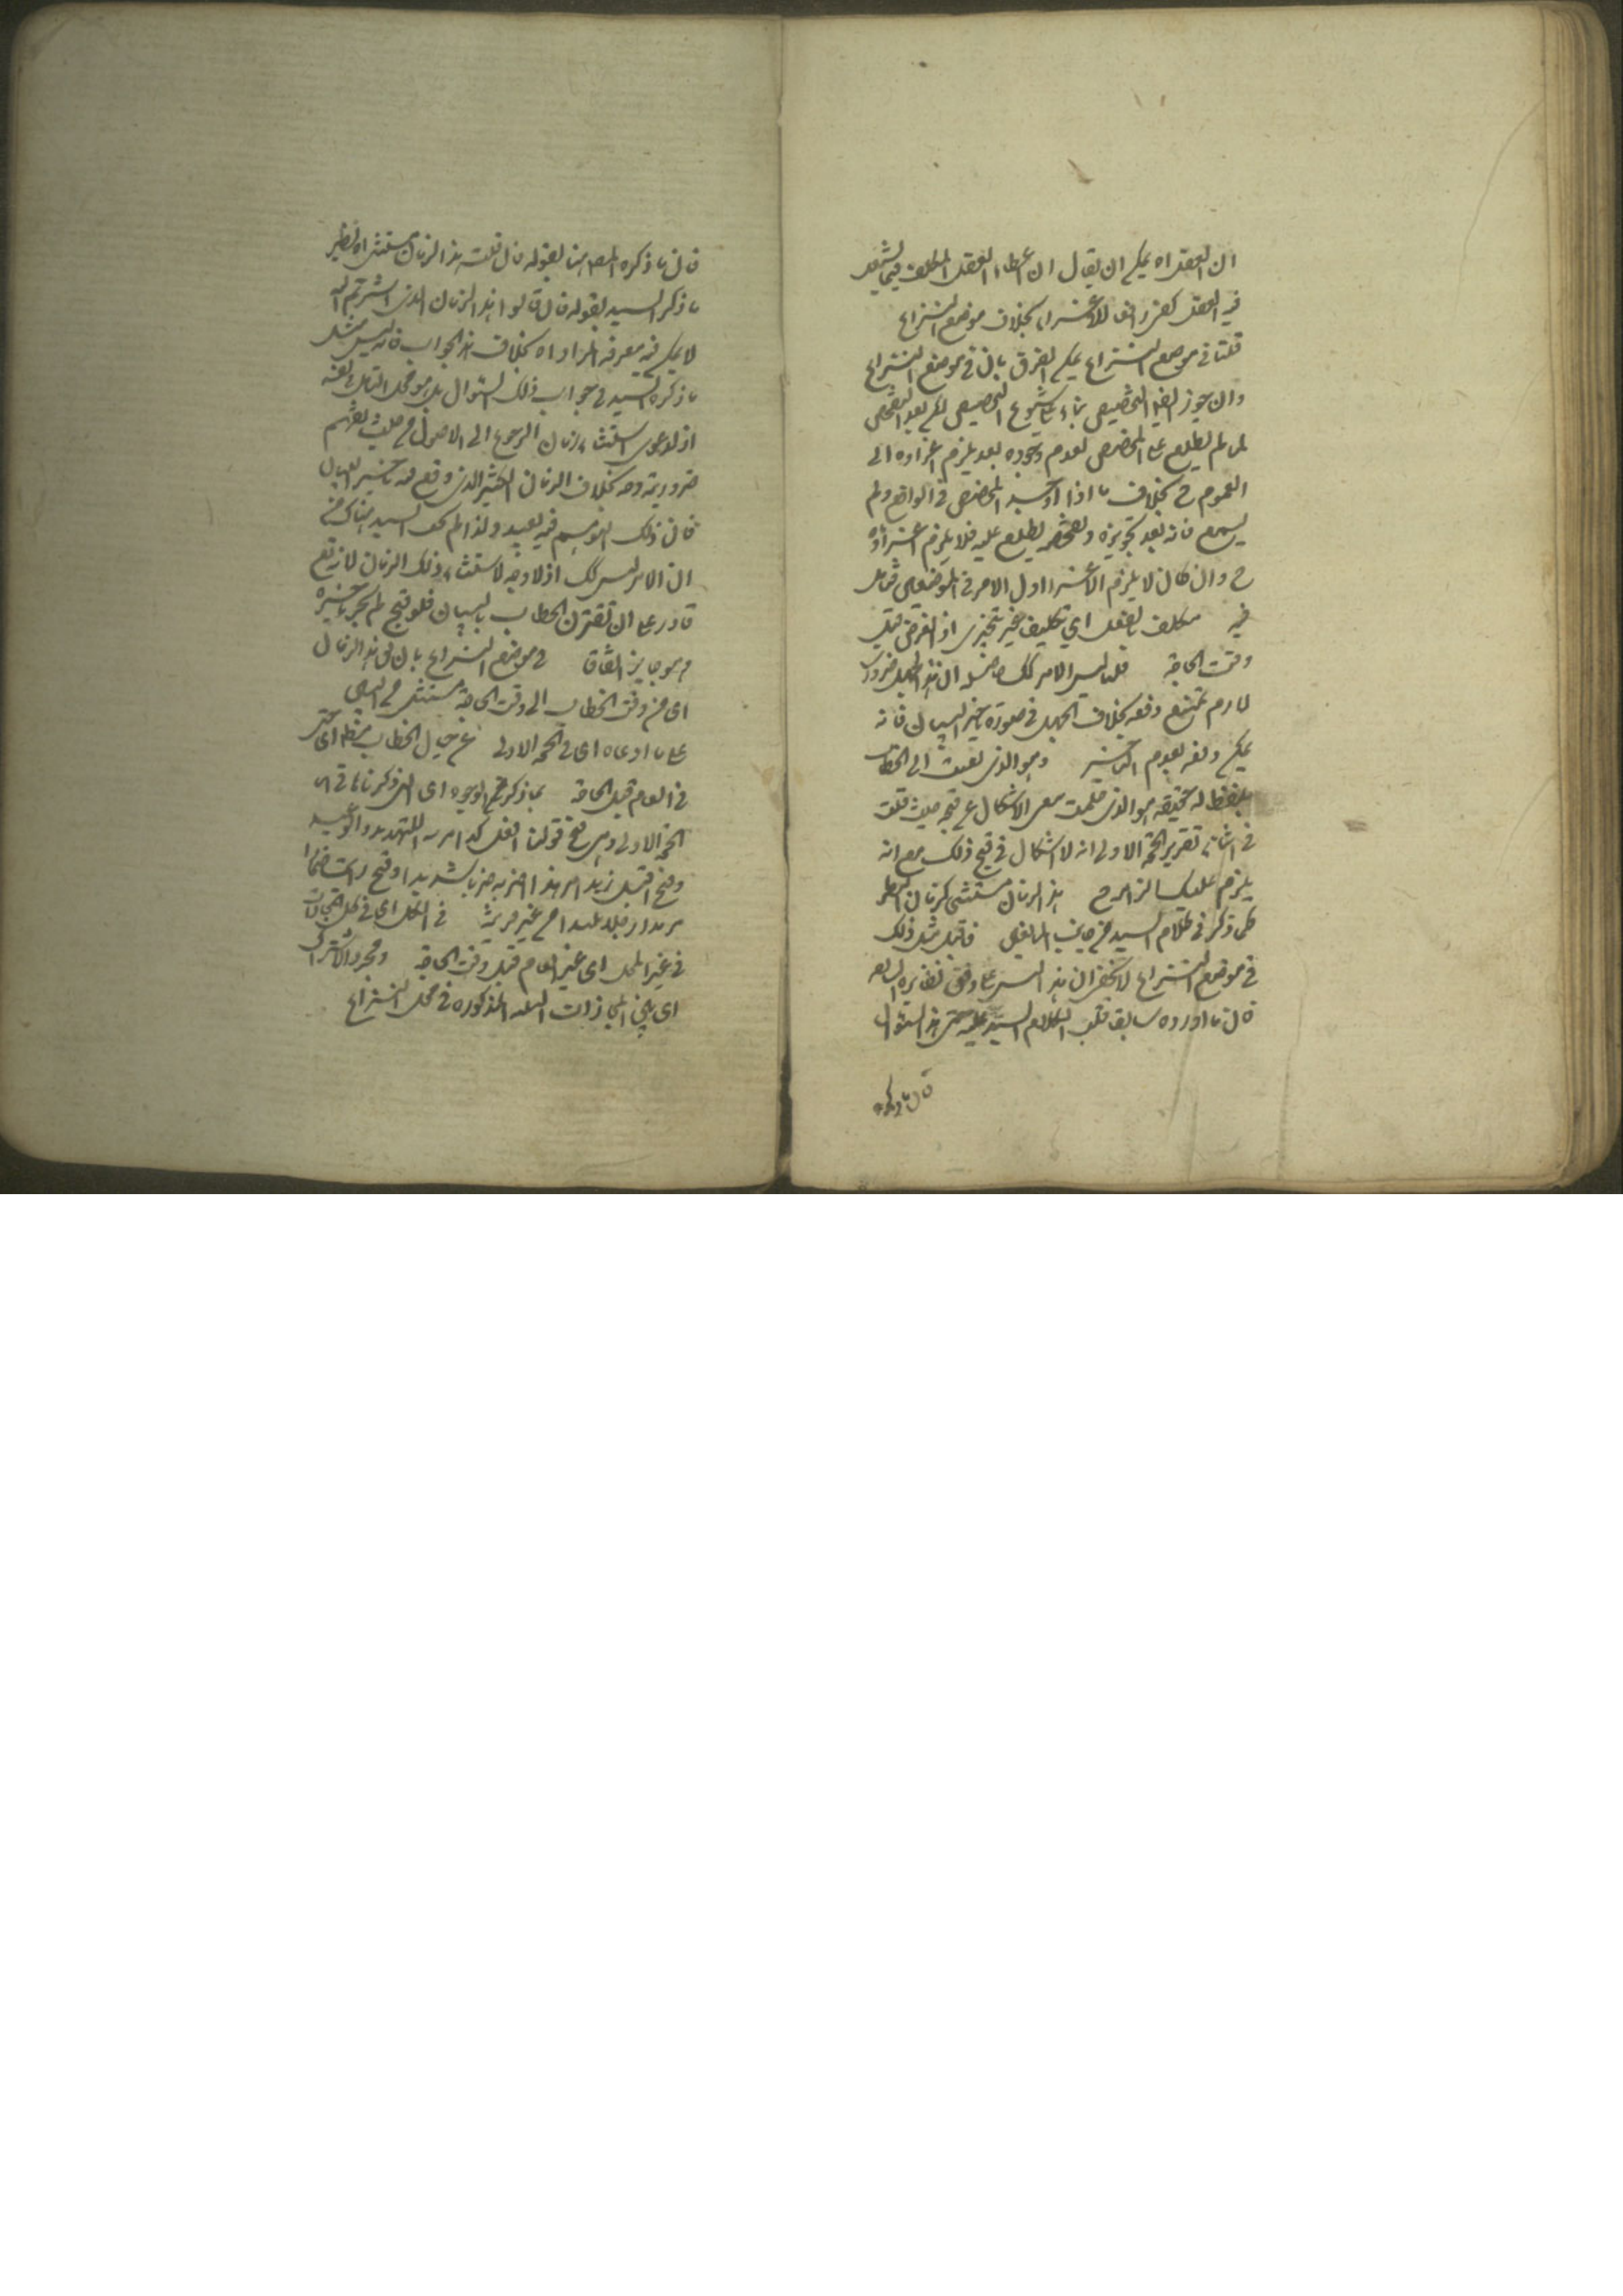 ان العقل اه يمكن ان يقال ان اعطاء العقل المكلف فيما يستقل
فيه العقل كفى رافعا للاغراء بخلاف موضع النزاع
قلنا في موضع النزاع يمكن الفرق بان في موضع النزاع
وان جوز ايضا التخصيص بناء على شيوع التخصيص لكن بعد التفحص
لما لم يطلع على المخصص لعدم وجوده بعد يلزم اغراؤه الى
العموم ح بخلاف ما اذا وجد المخصص في الواقع ولم
يسمع فانه بعد تجويزه وتفحصه يطلع عليه فلا يلزم اغراؤه
ح وان كان لا يلزم الاغراء اول الامر في الموضعين فتامل
فيه مكلف بالفعل اي تكليف غير تنجيزي اذ الفرض قبل
وقت الحاجة قلنا ليس الامر كك حاصله ان هذا الجهل ضروري
لازم يمتنع دفعه بخلاف الجهل في صورة تاخير البيان فانه
يمكن دفعه بعدم التاخير وهو الذي تعسف الى الخطاب
بلفظ له حقيقة هو الذي
في اثناء تقرير الحجة الاولى انه لا اشكال في قبح ذلك مع انه
يلزم عليك هذا الزمان مستثنى كزمان النظر
كما ذكر في كلام السيد من جانب المانعين فاقبل مثل ذلك
في موضع النزاع لا يخفى ان هذا ليس على وفق نظايره السابقة
فان ما اورده سابقا قلب لكلام السيد عليه حتى هذا السؤال
فان ما ذكره
فان ما ذكره المصر هنا بقوله فان قلت هذا الزمان مستثنى اه نظير
ما ذكر السيد بقوله فان قالوا هذا الزمان الذي اشرتم اليه
لا يمكن فيه معرفة المراد اه بخلاف هذا الجواب فانه ليس مثل
ما ذكره السيد في جواب ذلك السؤال بل هو محل التامل في نفسه
اذ دعوى استثناء زمان الرجوع الى الاصول
ضرورية وجه بخلاف الزمان الكثير الذي وقع فيه تاخير البيان
فان ذلك التوهم فيه بعيد ولذا لم السيد هناك من
ان الامر ليس كك اذ لا وجه لاستثناء ذلك الزمان لانه تع
قادر على ان يقترن الخطاب بالبيان فلو قبح لم يجز تاخيره
وهو جايز اتفاقا في موضع النزاع بان هذا الزمان
اي من وقت الخطاب الى وقت الحاجة مستثنى من البين
على ما ادعاه اي في الحجة الاولى عن حال الخطاب
في العام قبل الحاجة بما ذكر من الوجوه اي التي ذكرناها في
الحجة الاولى وهي قبح قولنا افعل كذا امر به للتهديد والوعيد
وقبح اقتل زيدا مريدا اضربه ضربا شديدا وقبح رايت حمارا
مريدا رجلا بليدا من غير قرينة في الكل اي في كل المجازات
في غير المحل اي غير العام قبل وقت الحاجة ومجرد الاشتراك
اي بين المجازات الثلثة المذكورة في محل النزاع